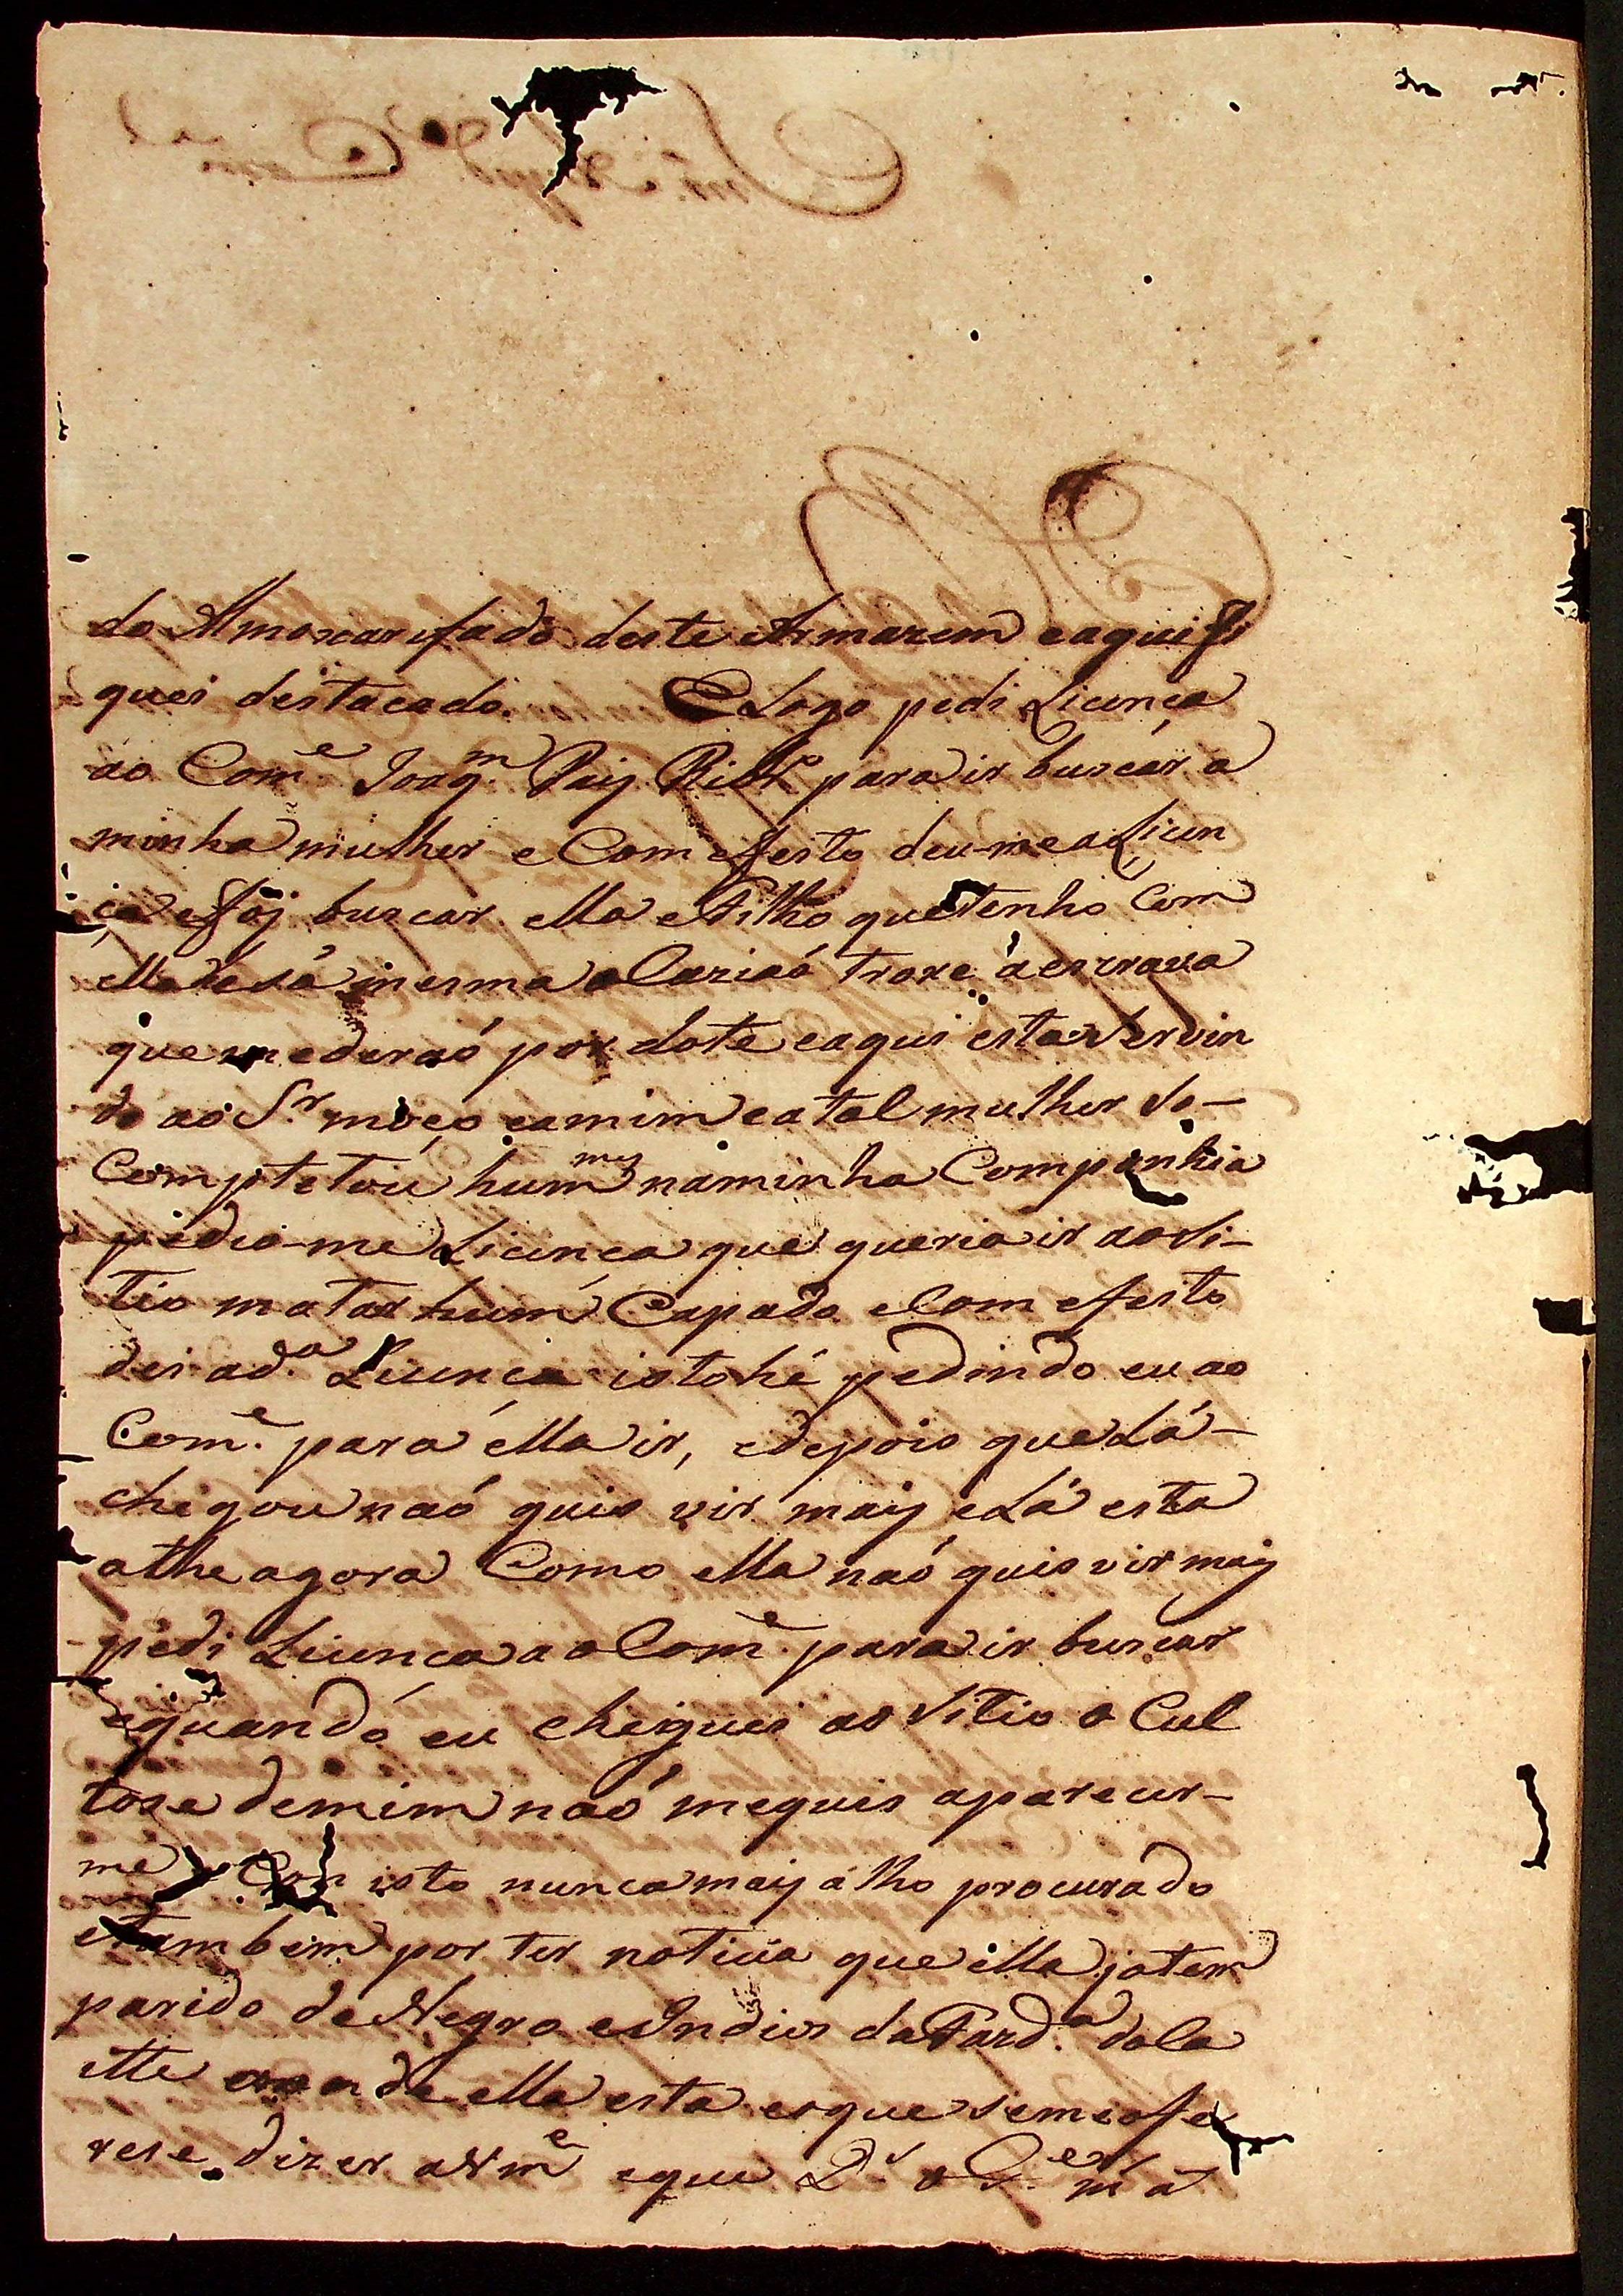 do Almoxarifado deste Armazem eaqui fi
quei destacado. E Logo pedi Licença
ao Com.e Joaq.m Paiz para ir buscar a
minha mulher e Com efeito deu-me a Licen
ça e foj buscar ella e Filho que tenho Com
ella de lá mesma ocaziaó troxe a escrava
que me deraó por dote eaqui esta Servin
do ao S.r moço eamim ea tal mulher So-
Comptetou hum mes naminha Companhia
pedio-me Licença que queria ir ao Si-
tio matar hum Capado e Com efeito
dei ad.a Licença isto hé pedindo eu ao
Com.e para ella ir, edepois que Lá-
chegou naó quis vir maiz e Lá esta
athe agora Como ella naó quis vir maiz
pedi Licença ao Com.e para ir buscar
equando eu cheguei ao Sitio o Cul
tose demim naó mequis aparecer-
me Com isto nunca maiz a lho procurado
etambem por ter noticia que ella ja tem
parido de Negro e Indios da Fazd.a dela
onde ella esta eoque Seme ofe
rese dizer a Vm.e eque D.s a G.e m a